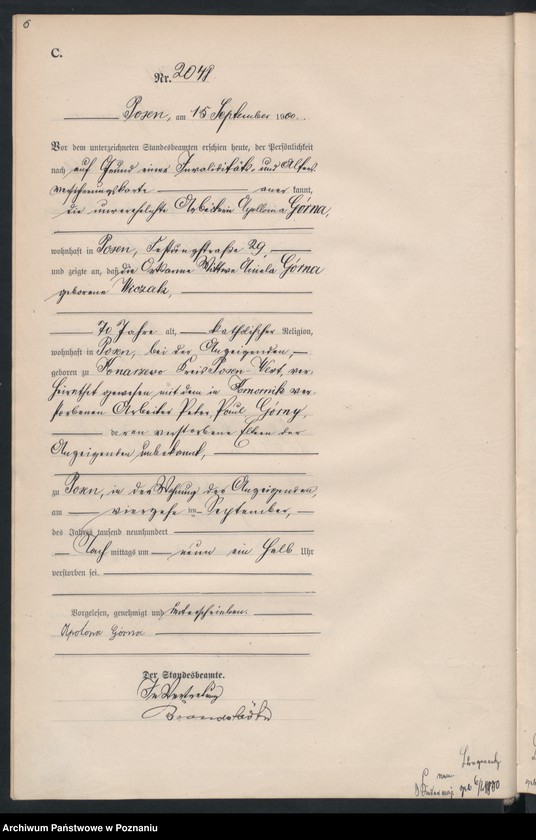 6
C.
Nr. 2048
Posen, am 15 September 1900.
Vor dem unterzeichneten Standesbeamten erschien heute, der Persönlichkeit
nach auf Grund einer Invaliditäts- und Alters-
versicherungskarte anerkannt,
die unverehelichte Arbeiterin Apollonia Górna,
wohnhaft in Posen, Festungstraße 29,
und zeigte an, daß die Ortsarme Wittwe Aniela Górna
geborene
70 Jahre alt, katholischer Religion,
wohnhaft in Posen, bei der Anzeigenden,
geboren zu Konarzewo Kreis Posen-West, ver-
heirathet gewesen mit dem in Komornik ver-
storbenen Arbeiter Peter, Paul Górny,
deren verstorbene Eltern der
Anzeigenden unbekannt,
zu Posen, in der Wohnung der Anzeigenden,
am vierzehnten September,
des Jahres tausend neunhundert
Nachmittags um neun ein halb Uhr
verstorben sei.
Vorgelesen, genehmigt und unterschrieben.
Apolonia Górna
Der Standesbeamte.
In Vertretung
Archiwum Państwowe w Poznaniu